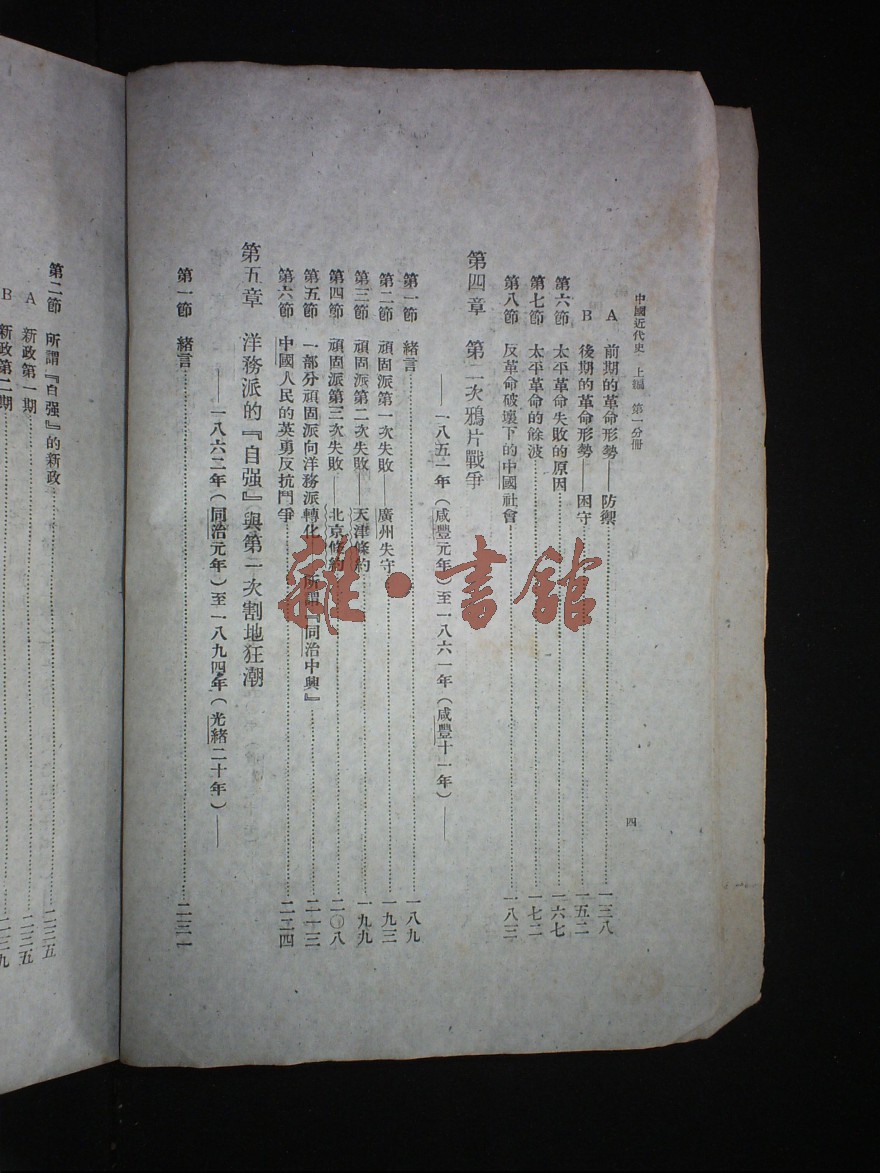 中國近代史 上編 第一分冊
四
A 前期的革命形勢——防禦……一三八
B 後期的革命形勢——困守……一五二
第六節 太平革命失敗的原因……一六七
第七節 太平革命的餘波……一七二
第八節 反革命破壞下的中國社會……一八三
第四章 第二次鴉片戰爭
——一八五一年(咸豐元年)至一八六一年(咸豐十一年)——
第一節 緒言……一八九
第二節 頑固派第一次失敗——廣州失守……一九三
第三節 頑固派第二次失敗——天津條約……一九九
第四節 頑固派第三次失敗——北京條約……二〇八
第五節 一部分頑固派向洋務派轉化——所謂『同治中興』……二一三
第六節 中國人民的英勇反抗鬥爭……二二四
第五章 洋務派的『自强』與第一次割地狂潮
——一八六二年(同治元年)至一八九四年(光緒二十年)——
第一節 緒言……二三一
第二節 所謂『自强』的新政……二三五
A 新政第一期……二三五
B 新政第二期……二三九
雜·書館